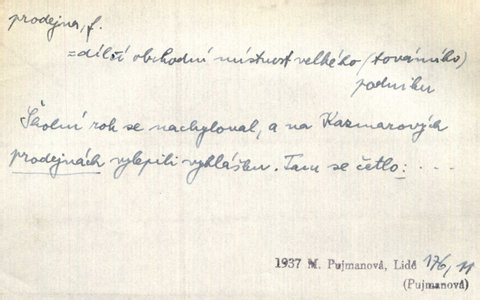 prodejna, f.
= dílčí obchodní místnost velkého (továrního)
podniku
Školní rok se nachyloval, a na Kazmarových
prodejnách vylepili vyhlášku. Tam se četlo: ....
1937 M. Pujmanová, Lidé 176, 11
(Pujmanová)